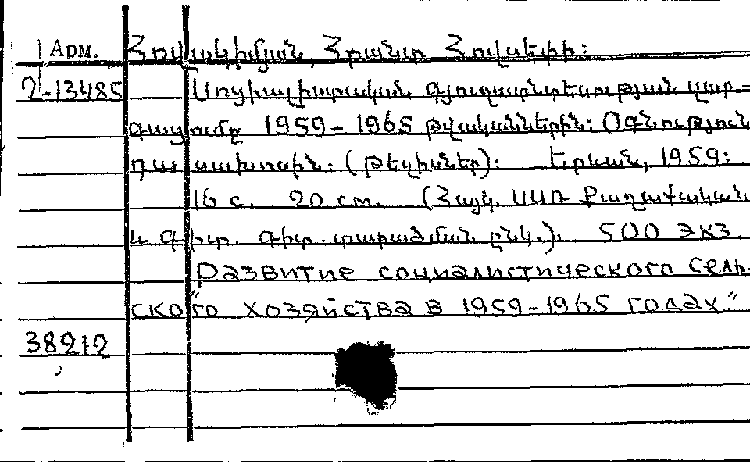 Арм. Հովակիմյան, Հրանտ Հովսեփի:
2-13485 Սոցիալիստական գյուղատնտեսության զար-
գացումը 1959-1965 թվականներին: Օգնություն
դասախոսին: (թեզիսներ): Երևան, 1959:
16 с. 20 см. (Հայկ. ՍՍՌ Քաղաքական
և գիտ. գիտ. տարածման ընկ.). 500 экз.
"Развитие социалистического сель-
ского хозяйства в 1959-1965 годах"
38212